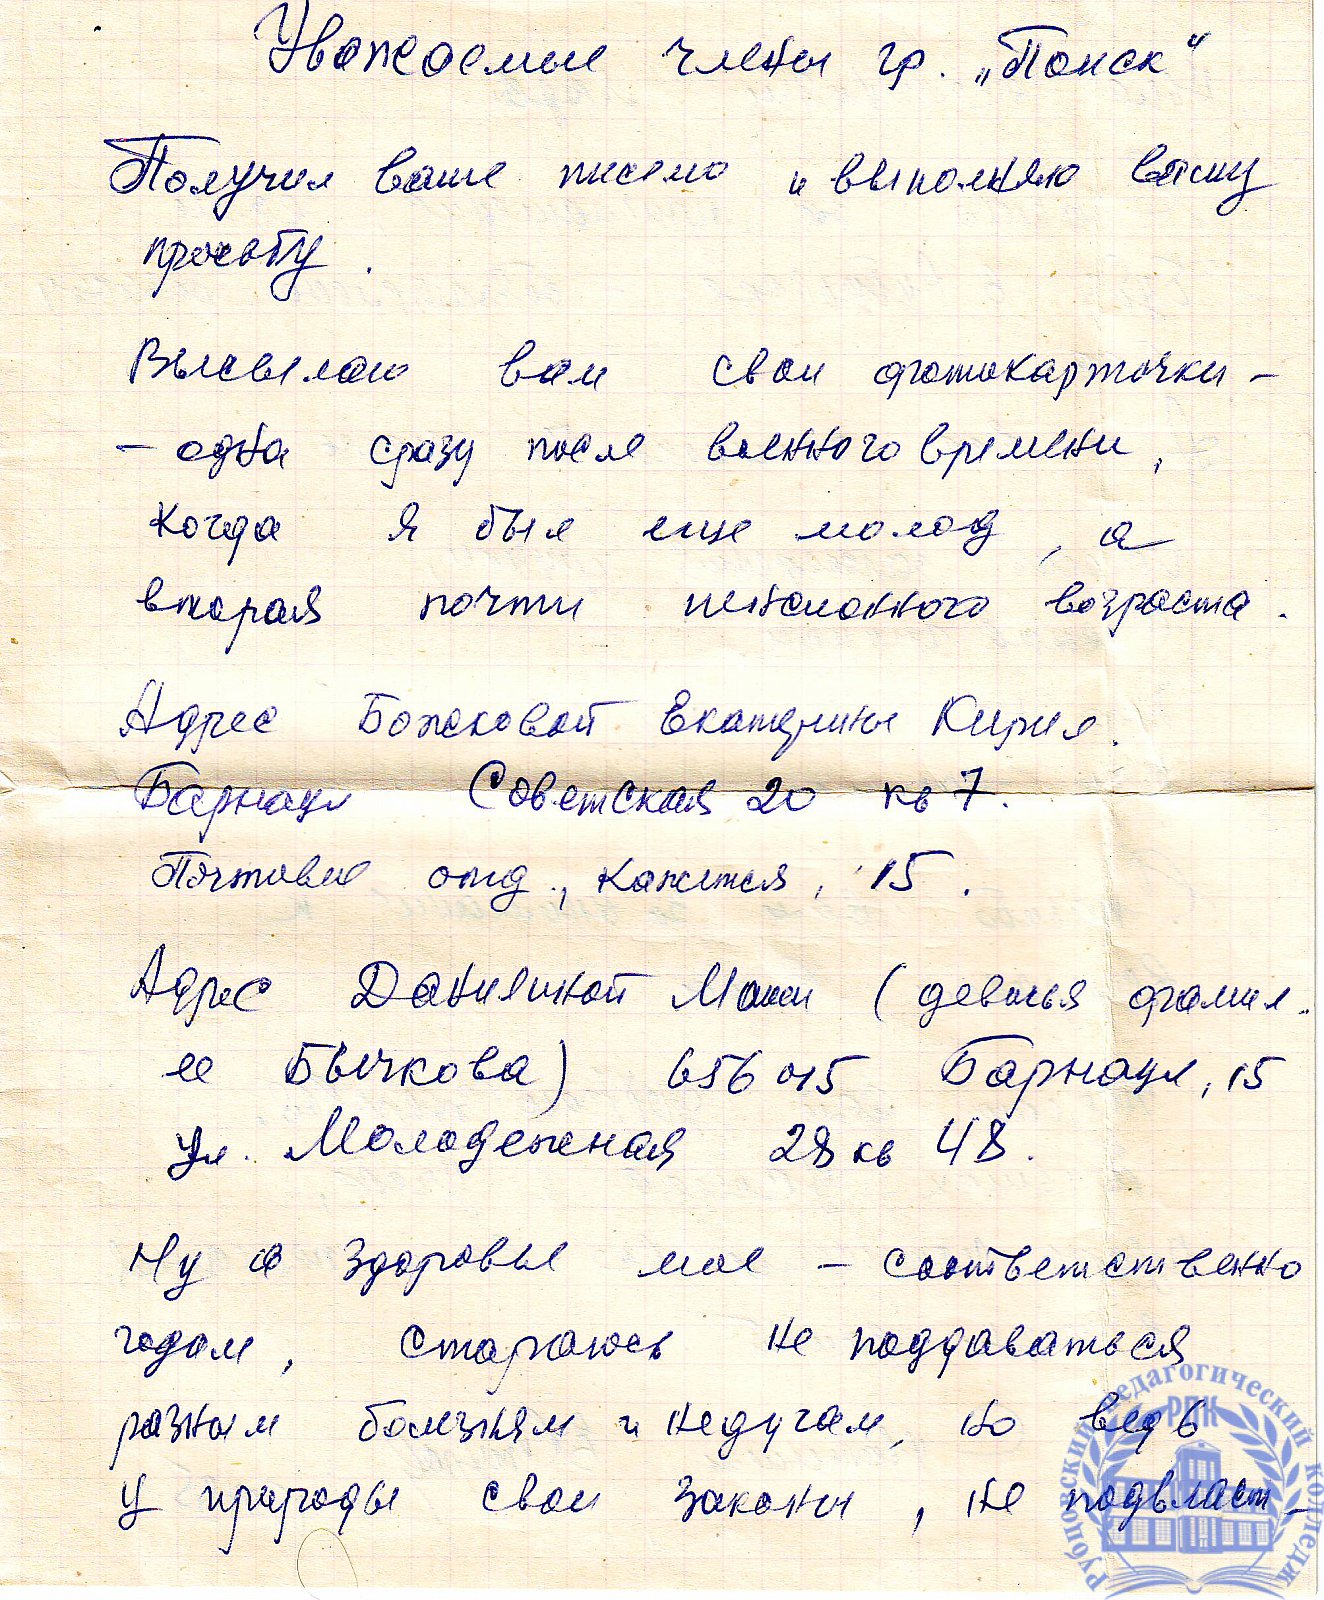 Уважаемые члены гр. „Поиск“
Получил ваше письмо и выполняю вашу
просьбу.
Высылаю вам свои фотокарточки -
- одна сразу после военного времени,
когда я был еще молод, а
вторая почти пенсионного возраста.
Адрес Божковой Екатерины Кирил.
Барнаул Советская 20 кв 7.
Почтовое отд., кажется, 15.
Адрес Данилиной Маши (девичья фамил.
ее Бычкова) 656015 Барнаул, 15
ул. Молодежная 28 кв 48.
Ну а здоровье мое - соответственно
годам, стараюсь не поддаваться
разным болезням и недугам, но ведь
у природы свои законы, не подвласт-
Рубцовский педагогический колледж
РПК